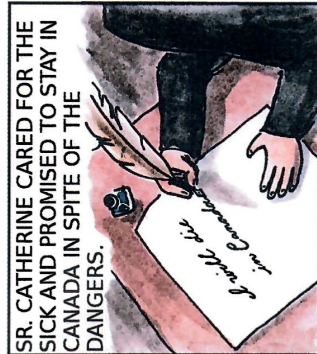 SR. CATHERINE CARED FOR THE
SICK AND PROMISED TO STAY IN
CANADA IN SPITE OF THE
DANGERS.
I will die
in Canada